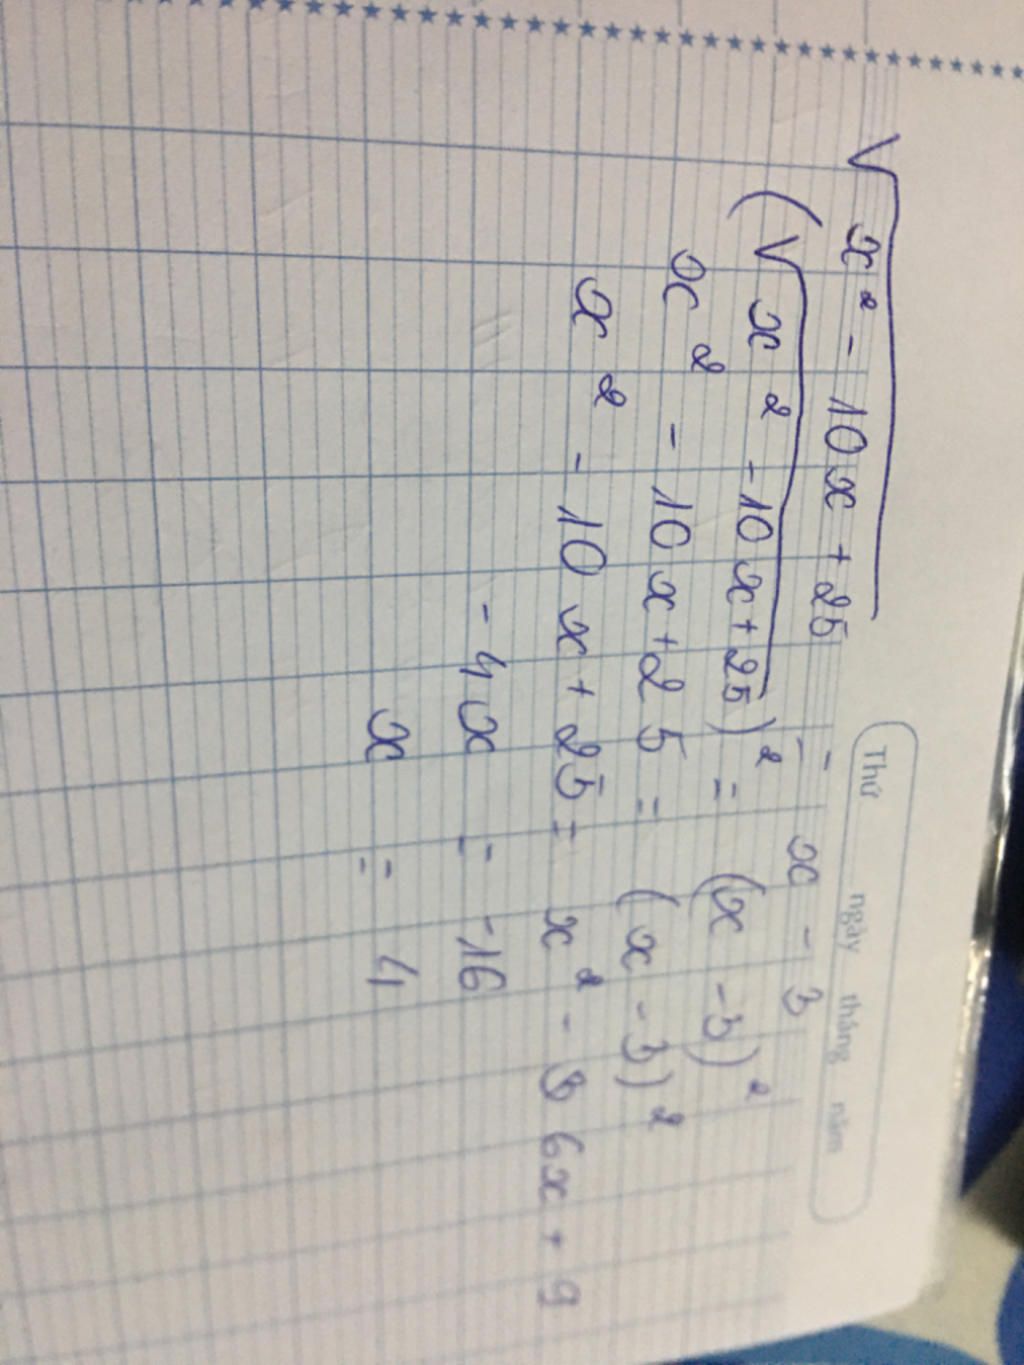 Thứ ngày tháng năm
√x² - 10x + 25 = x - 3
(√x² - 10x + 25)² = (x - 3)²
x² - 10x + 25 = (x - 3)²
x² - 10x + 25 = x² - 6x + 9
- 4x = -16
x = 4